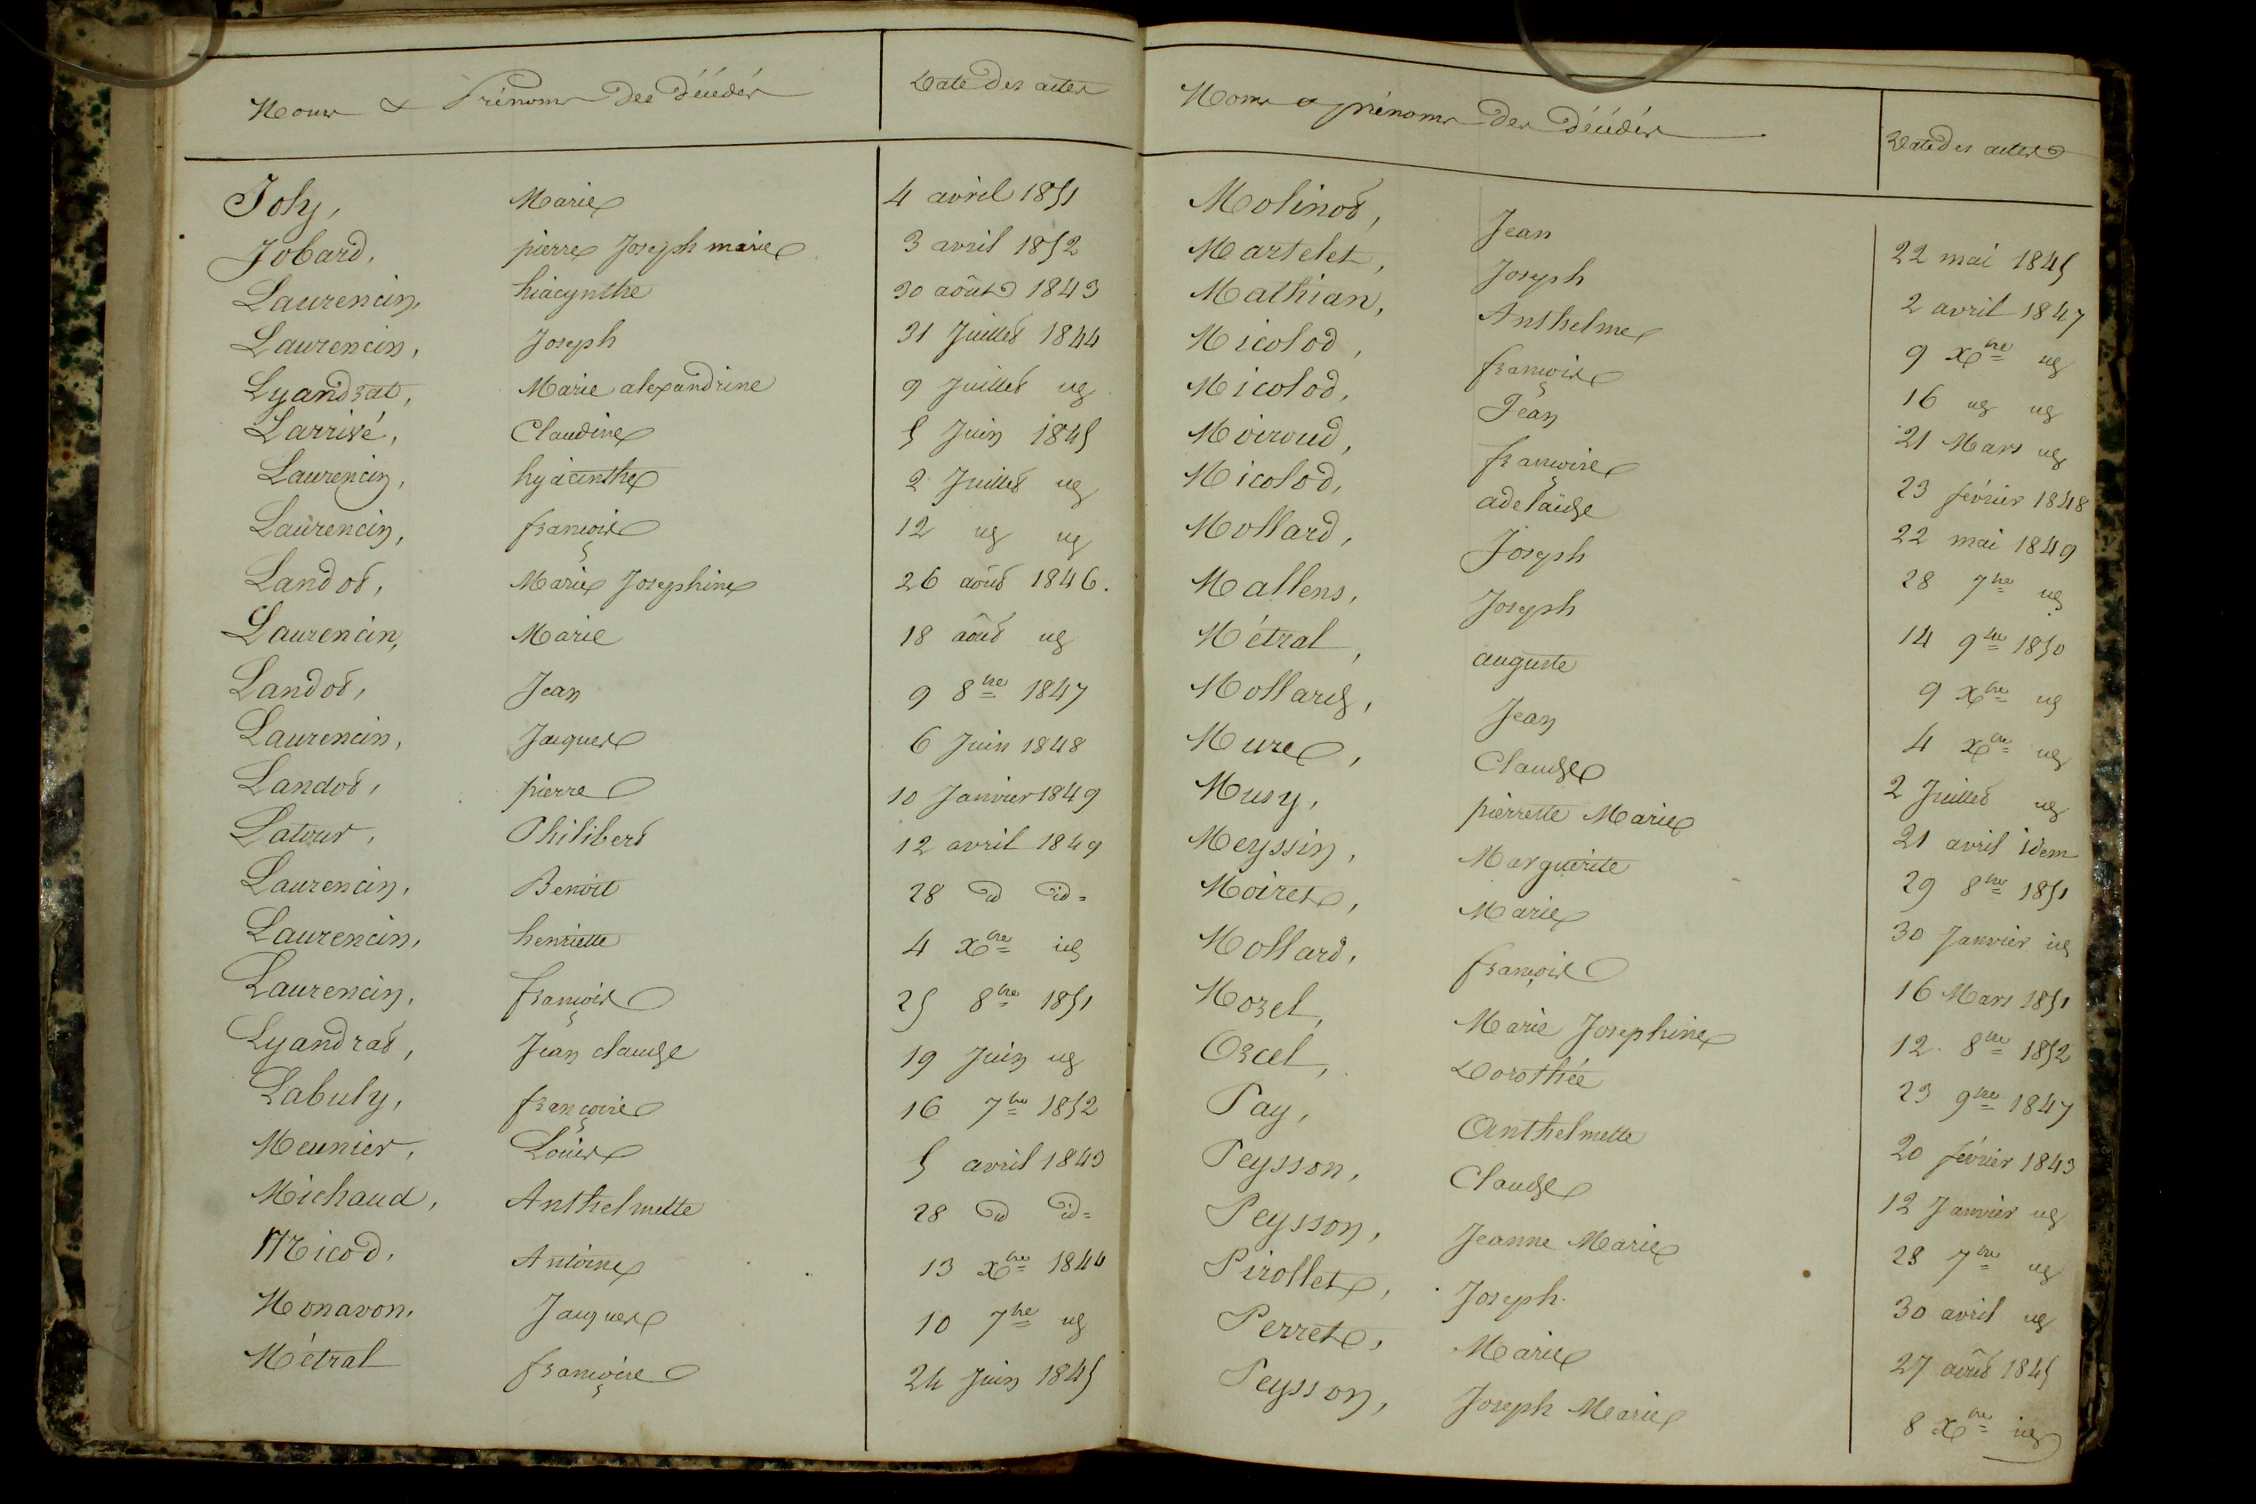 Noms & Prénoms des décédés Date des actes
Joly, Marie 4 avril 1851
Jobard, pierre Joseph marie 3 avril 1852
Laurencin, hiacynthe 30 août 1843
Laurencin, Joseph 31 Juillet 1844
Lyandrat, Marie alexandrine 9 Juillet id
Larrivé, Claudine 5 Juin 1845
Laurencin, hyacinthe 2 Juillet id
Laurencin, françois 12 id id
Landot, Marie Josephine 26 août 1846.
Laurencin, Marie 18 août id
Landot, Jean 9 8bre 1847
Laurencin, Jacques 6 Juin 1848
Landot, pierre 10 Janvier 1849
Latour, Philibert 12 avril 1849
Laurencin, Benoit 28 id id=
Laurencin, henriette 4 xbre id
Laurencin, françois 25 8bre 1851
Lyandrat, Jean claude 19 Juin id
Labuly, françoise 16 7bre 1852
Meunier, Louise 5 avril 1843
Michaud, Anthelmette 28 id id=
Micod, Antoine 13 xbre 1844
Monavon, Jacques 10 7bre id
Métral françoise 24 Juin 1845
Noms & prénoms des décédés Date des actes
Molinot, Jean 22 mai 1845
Martelet, Joseph 2 avril 1847
Mathian, Anthelme 9 xbre id
Micolod, françoise 16 id id
Micolod, Jean 21 Mars id
Moiroud, françoise 23 février 1848
Micolod, adelaïde 22 mai 1849
Mollard, Joseph 28 7bre id
Mallens, Joseph 14 9bre 1850
Métral, auguste 9 xbre id
Mollard, Jean 4 xbre id
Mure, Claude 2 Juillet id
Musy, pierrette Marie 21 avril idem
Meyssin, Marguerite 29 8bre 1851
Moiret, Marie 30 Janvier id
Mollard, françois 16 Mars 1851
Morel, Marie Josephine 12 8bre 1852
Orcel, Dorothée 23 9bre 1847
Pay, Anthelmette 20 février 1843
Peysson, Claude 12 Janvier id
Peysson, Jeanne Marie 28 7bre id
Pirollet, Joseph 30 avril id
Perret, Marie 27 août 1845
Peysson, Joseph Marie 8 xbre id